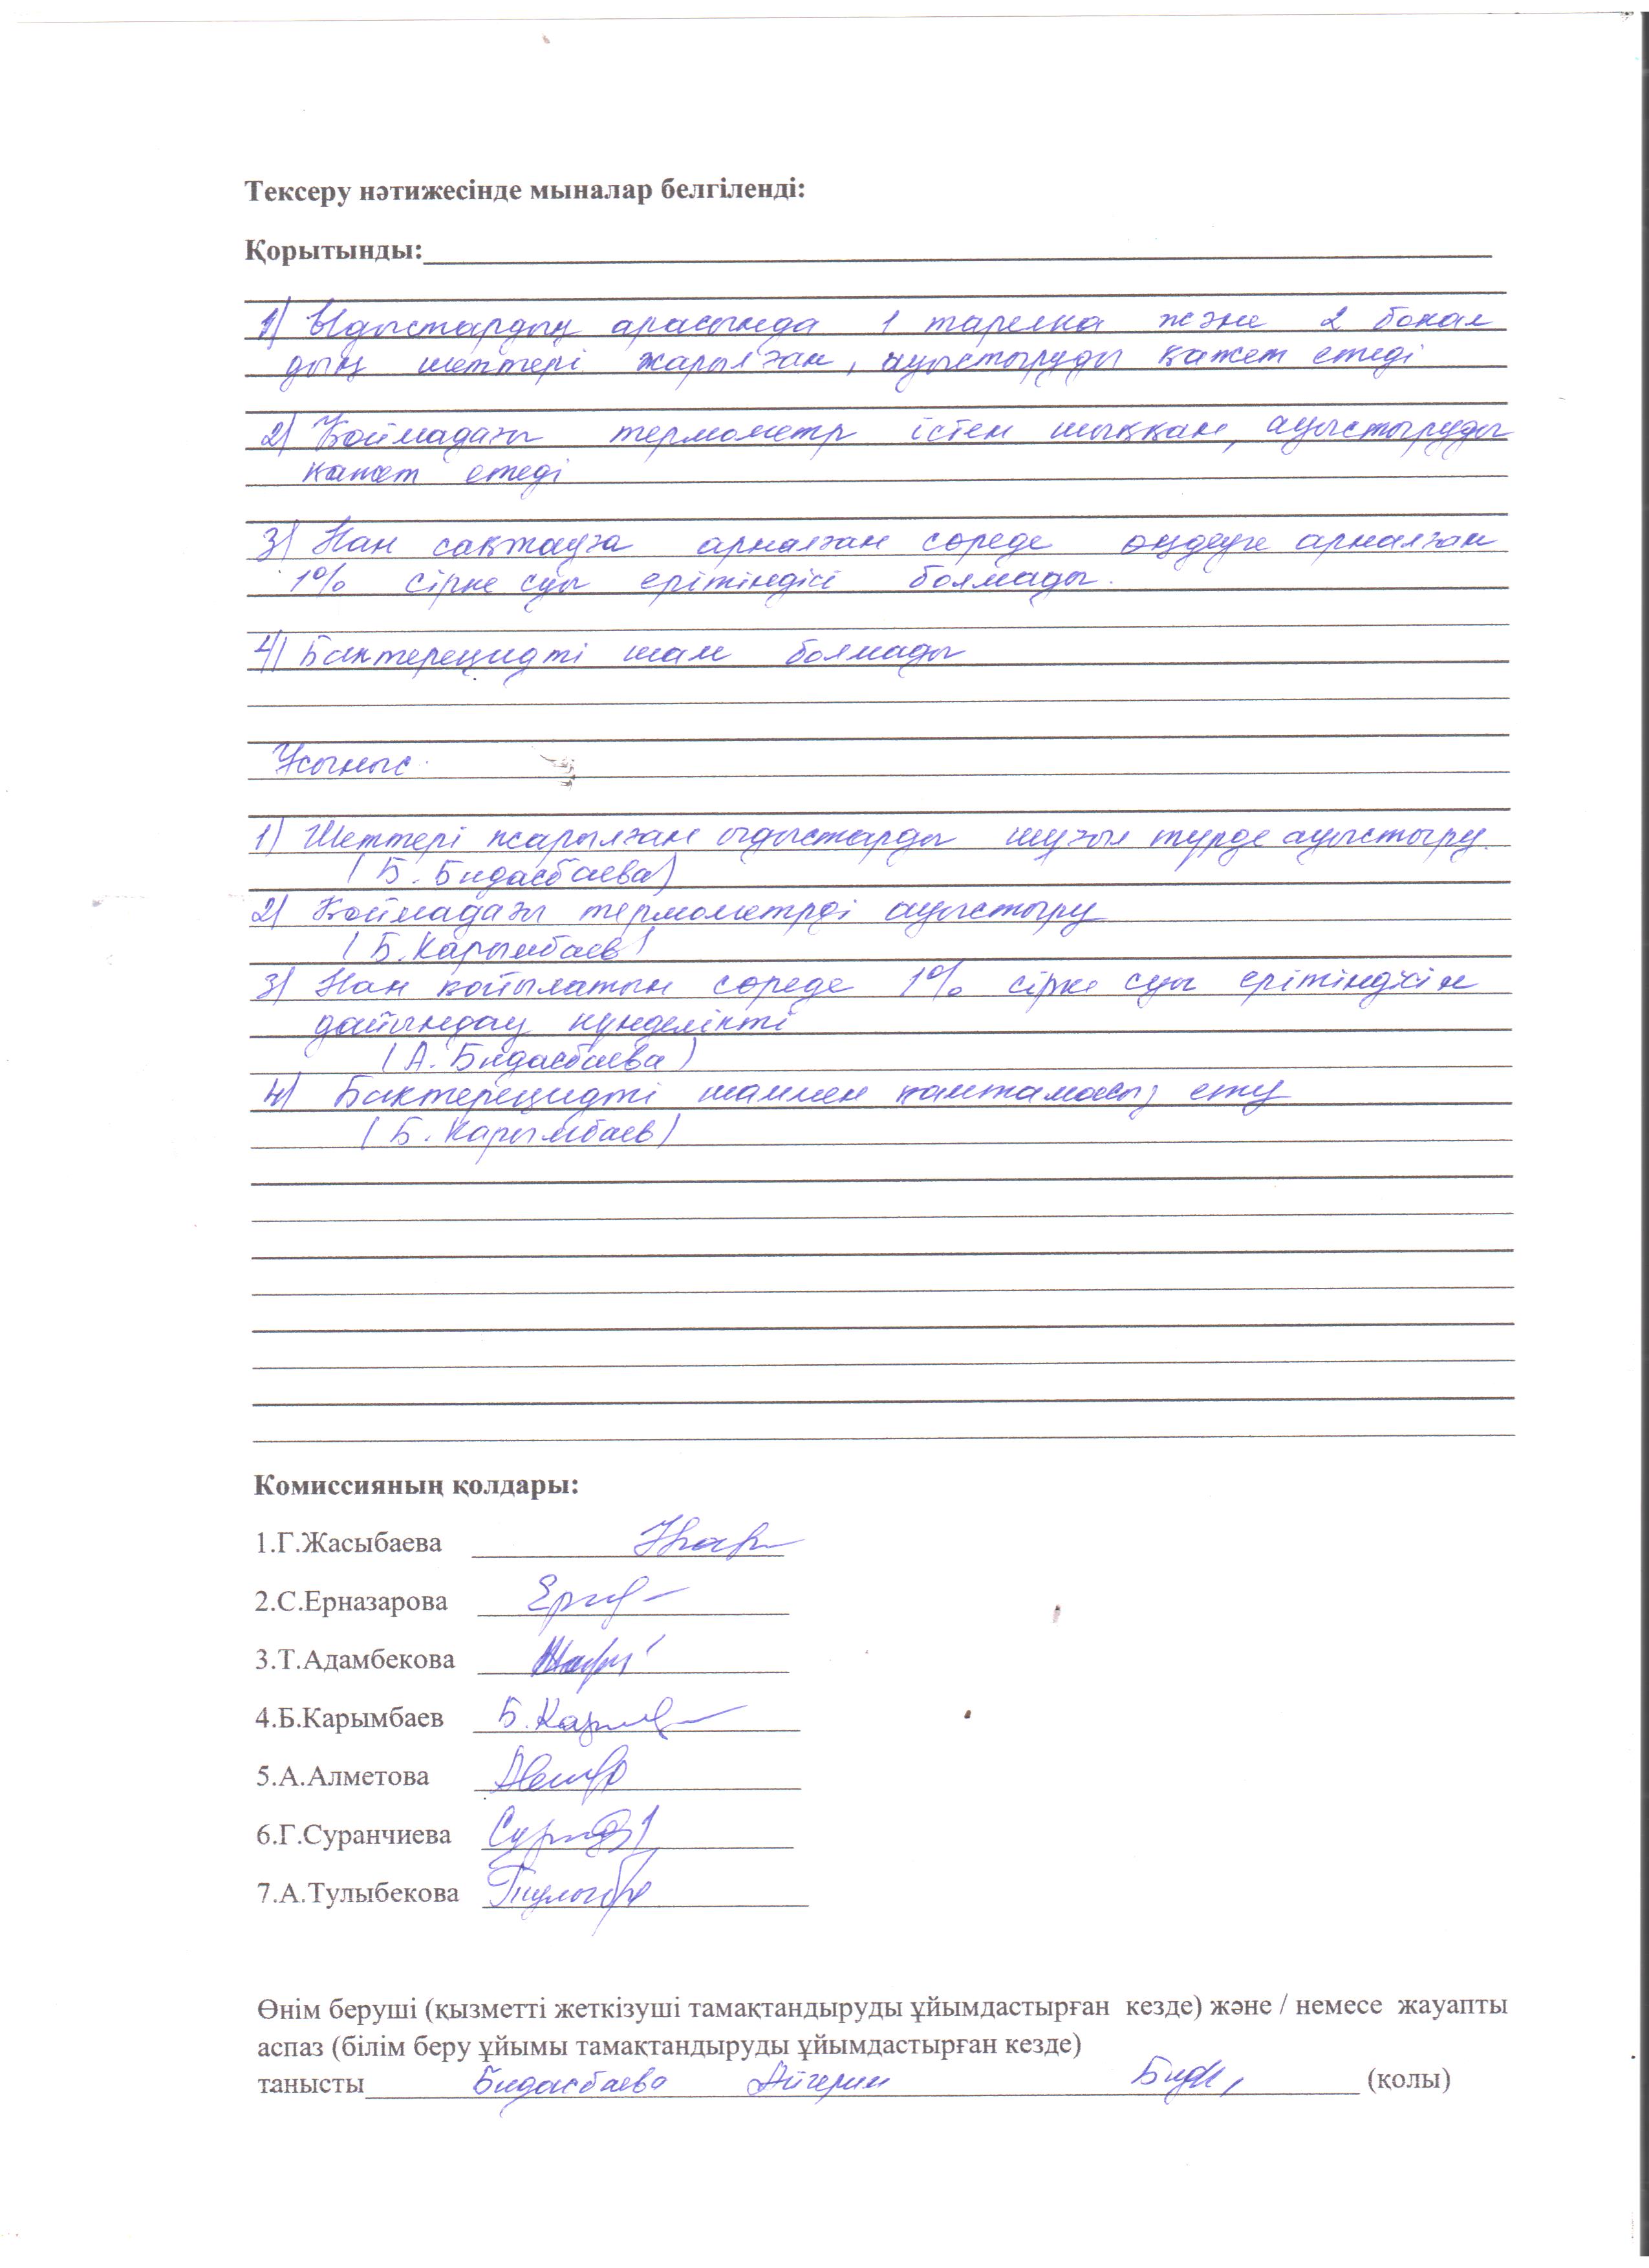 Тексеру нәтижесінде мыналар белгіленді:
Қорытынды:
1) Ыдыстардың арасында 1 тарелка және 2 бокал
дың шеттері жарылған, ауыстыруды қажет етеді
2) Қоймадағы термометр істен шыққан, ауыстыруды
қажет етеді
3) Нан сақтауға арналған сөреде өңдеуге арналған
1% сірке суы ерітіндісі болмады.
4) Бактерецидті шам болмады
Ұсыныс:
1) Шеттері жарылған ыдыстарды шұғыл түрде ауыстыру.
(Б. Бидасбаева)
2) Қоймадағы термометрді ауыстыру
(Б. Карымбаев)
3) Нан қойылатын сөреде 1% сірке суы ерітіндісін
дайындау күнделікті
(А. Бидасбаева)
4) Бактерецидті шаммен қамтамасыз ету
(Б. Карымбаев)
Комиссияның қолдары:
1.Г.Жасыбаева
2.С.Ерназарова
3.Т.Адамбекова
4.Б.Карымбаев Б.Карым
5.А.Алметова
6.Г.Суранчиева
7.А.Тулыбекова
Өнім беруші (қызметті жеткізуші тамақтандыруды ұйымдастырған кезде) және / немесе жауапты
аспаз (білім беру ұйымы тамақтандыруды ұйымдастырған кезде)
танысты Бидасбаева Айгерим (қолы)